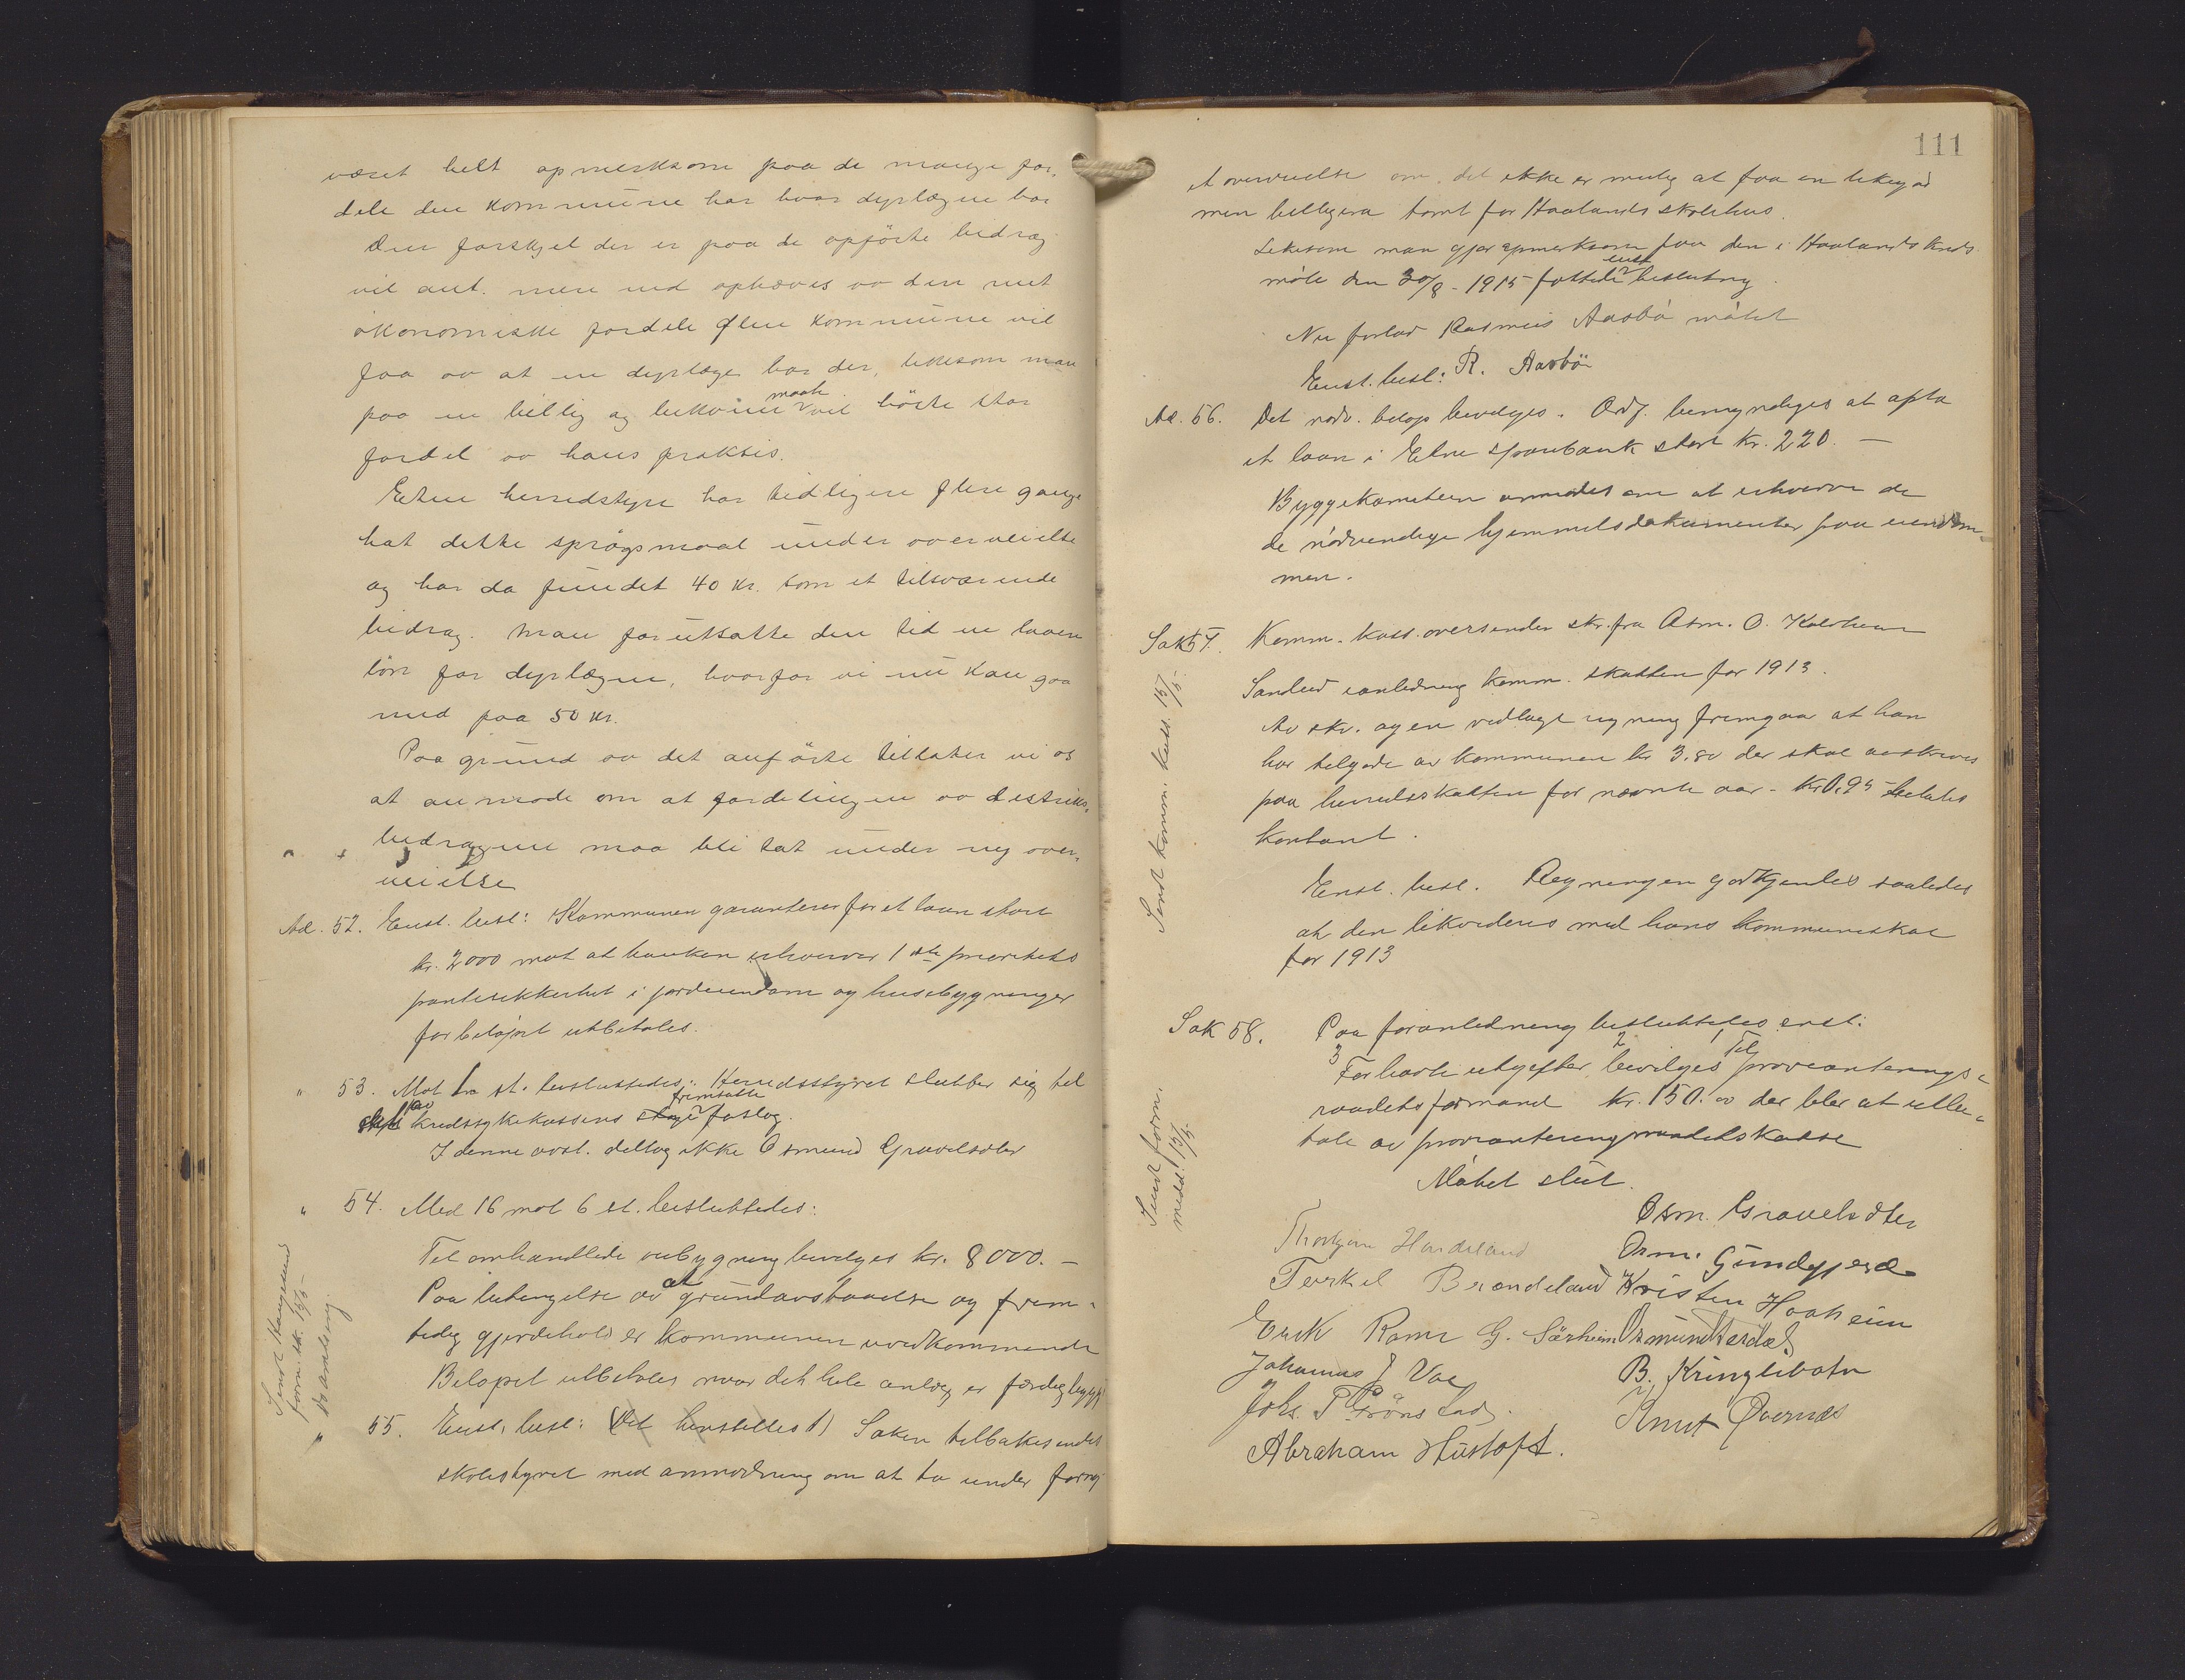 været helt opmerksom paa de mange for-
dele den kommune har hvor dyrlægen bor
Den forskjel der er paa de opførte bidrag
vil ant. mere end ophæves av den rent
økonomiske fordele flere kommune vil
faa av at en dyrlæge bor der, likesom man
paa en billig og bekvem maate vil høste stor
fordel av hans praksis.
Etne herredstyre har tidligere flere gange
hat dette spørgsmaal under overveielse
og har da fundet 40 kr. som et tilsvarende
bidrag. Man forutsatte den tid en lavere
løn for dyrlægen, hvorfor vi nu kan gaa
med paa 50 kr.
Paa grund av det anførte tillater vi os
at anmode om at fordelingen av distrikts-
bidragene maa bli tat under ny over-
veielse
Ad. 52. Enst. besl: Kommunen garanterer for et laan stort
kr. 2000 mot at banken erhverver 1ste prioritets
pantesikkerhet i jordeiendom og husebygninger
før beløpet utbetales.
" 53. Mot 1 st. besluttedes: Herredsstyret slutter sig til
av kredssykekassens fremsatte forslag.
I denne avst. deltog ikke Osmund Gravelsæter
" 54. Med 16 mot 6 st. besluttedes:
Til omhandlede ombygning bevilges kr. 8000.-
Paa betingelse av at grundavstaaelse og frem-
tidig gjerdehold er kommunen uvedkommende
Beløpet utbetales naar det hele anlæg er færdigbygget
Sendt Haugesund
form. sk. 15/5-
" 55. Enst. besl: (Det henstilles t) Saken tilbakesendes
skolestyret med anmodning om at ta under fornyet
111
et overveielse om det ikke er mulig at faa en likegod
men billigere tomt for Haalands skolehus.
Likesom man gjør opmerksom paa den i Haalands kreds-
møte den 30/8 - 1915 fattede enst. beslutning.
Nu forlod Rasmus Aasbø møtet
R. Aasbö
Enst. besl:
Ad. 56. Det nødv. beløp bevilges. Ordf. bemyndiges at opta
et laan i Etne sparebank stort kr. 220.-
Byggekomiteen anmodes om at erhverve de
de nødvendige hjemmelsdokumenter paa eiendom-
men.
Sak 57. Komm. kass. oversender skr. fra Asm. O. Kaldheim
Sandeid i anledning komm. skatten for 1913.
Av skr. og en vedlagt regning fremgaar at han
har tilgode av kommunen kr 3.80 der skal avskrives
paa herredsskatten for nævnte aar - kr 0,95 betales
kontant.
Sendt komm. kass. 15/5-
Enst. besl. Regningen godkjendes saaledes
at den likvideres med hans kommuneskat
for 1913
Sak 58. Paa foranledning besluttedes enst:
3 For havte utgifter 2 bevilges 1 Til provianterings-
raadets formand kr. 150.00 der blir at utbe-
tale av provianteringsraadets kasse
Sendt form.
medd. 15/5-
Møtet slut.
Osm. Gravelsæter
Thorbjørn Handeland
Osm. Gundegjerde
Torkel Brandeland
Kristen Haaheim
Erik Rame
G. Særheim
Osmund Aardal
Johannes J Vae
B. Kringlebotn
Johs. P Grönstad.
Knut Øvernæs
Abraham Hustoft.